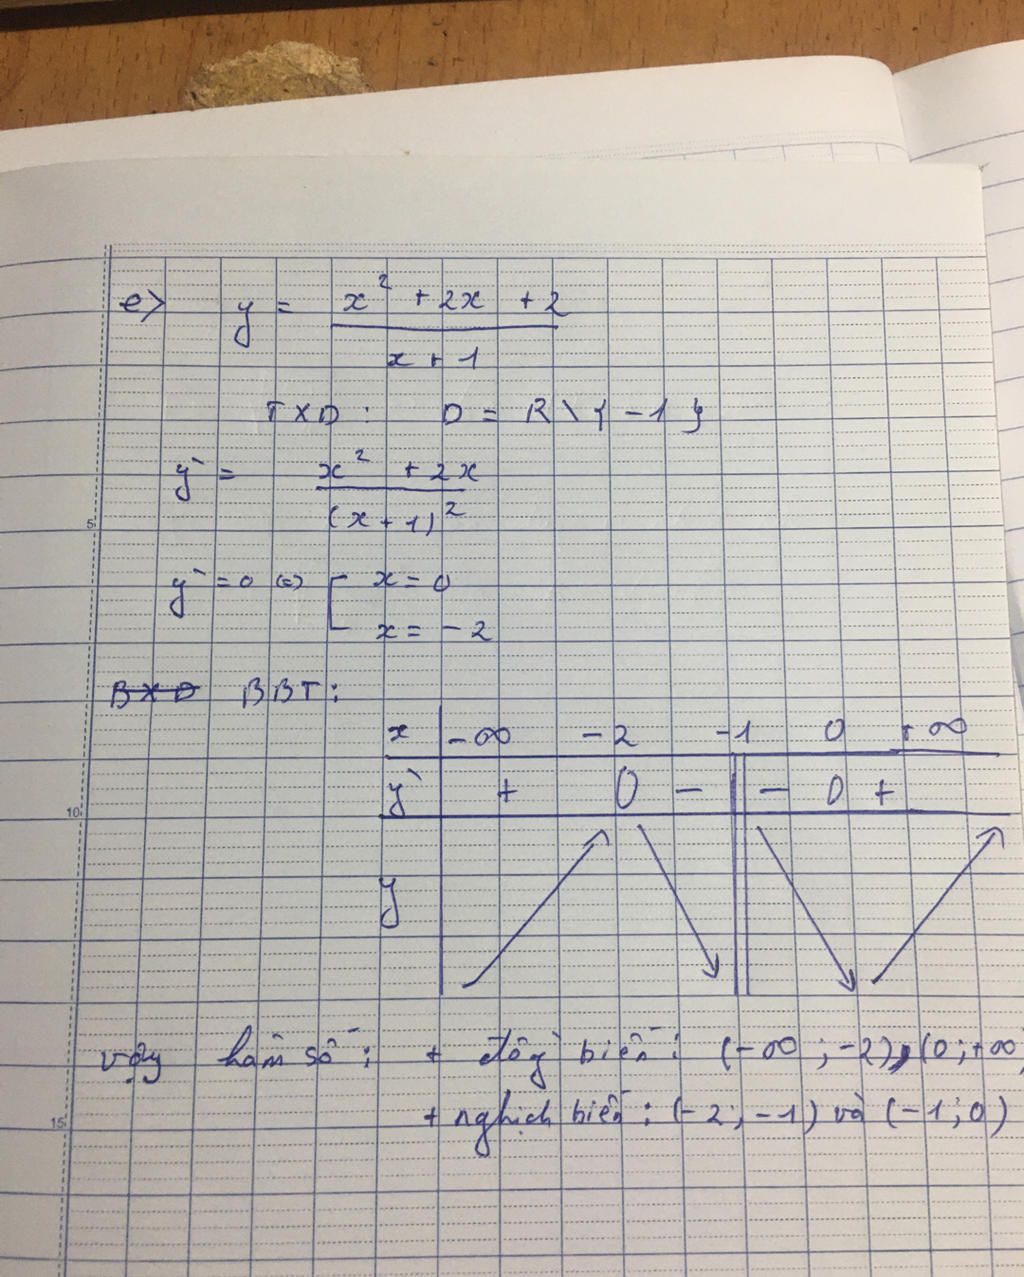 e) y = x² + 2x + 2
x + 1
TXD : D = R \ { -1 }
y' = x² + 2x
(x + 1)²
y' = 0 (=) [ x = 0
x = - 2
BXD BBT :
x -∞ -2 -1 0 +∞
y' + 0 - || - 0 +
y
vậy hàm số : + đồng biến : (-∞ ; -2), (0 ; +∞)
+ nghịch biến : (-2 ; -1) và (-1 ; 0)
5
10
15